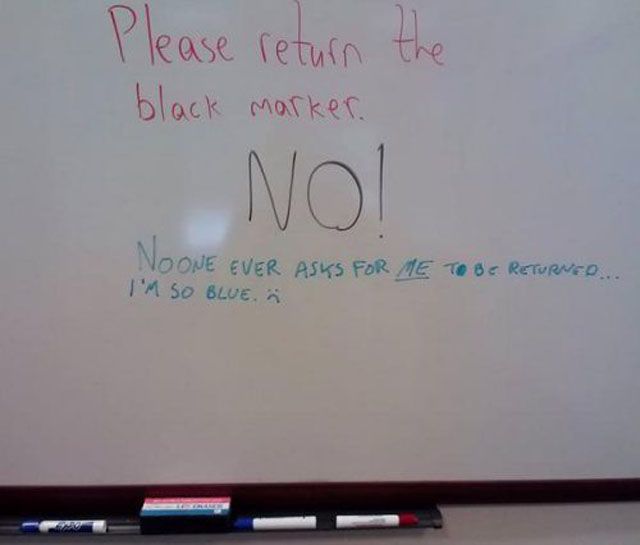 Please return the
black marker.
NO!
NO ONE EVER ASKS FOR ME TO BE RETURNED...
I'M SO BLUE. :(
EXPO